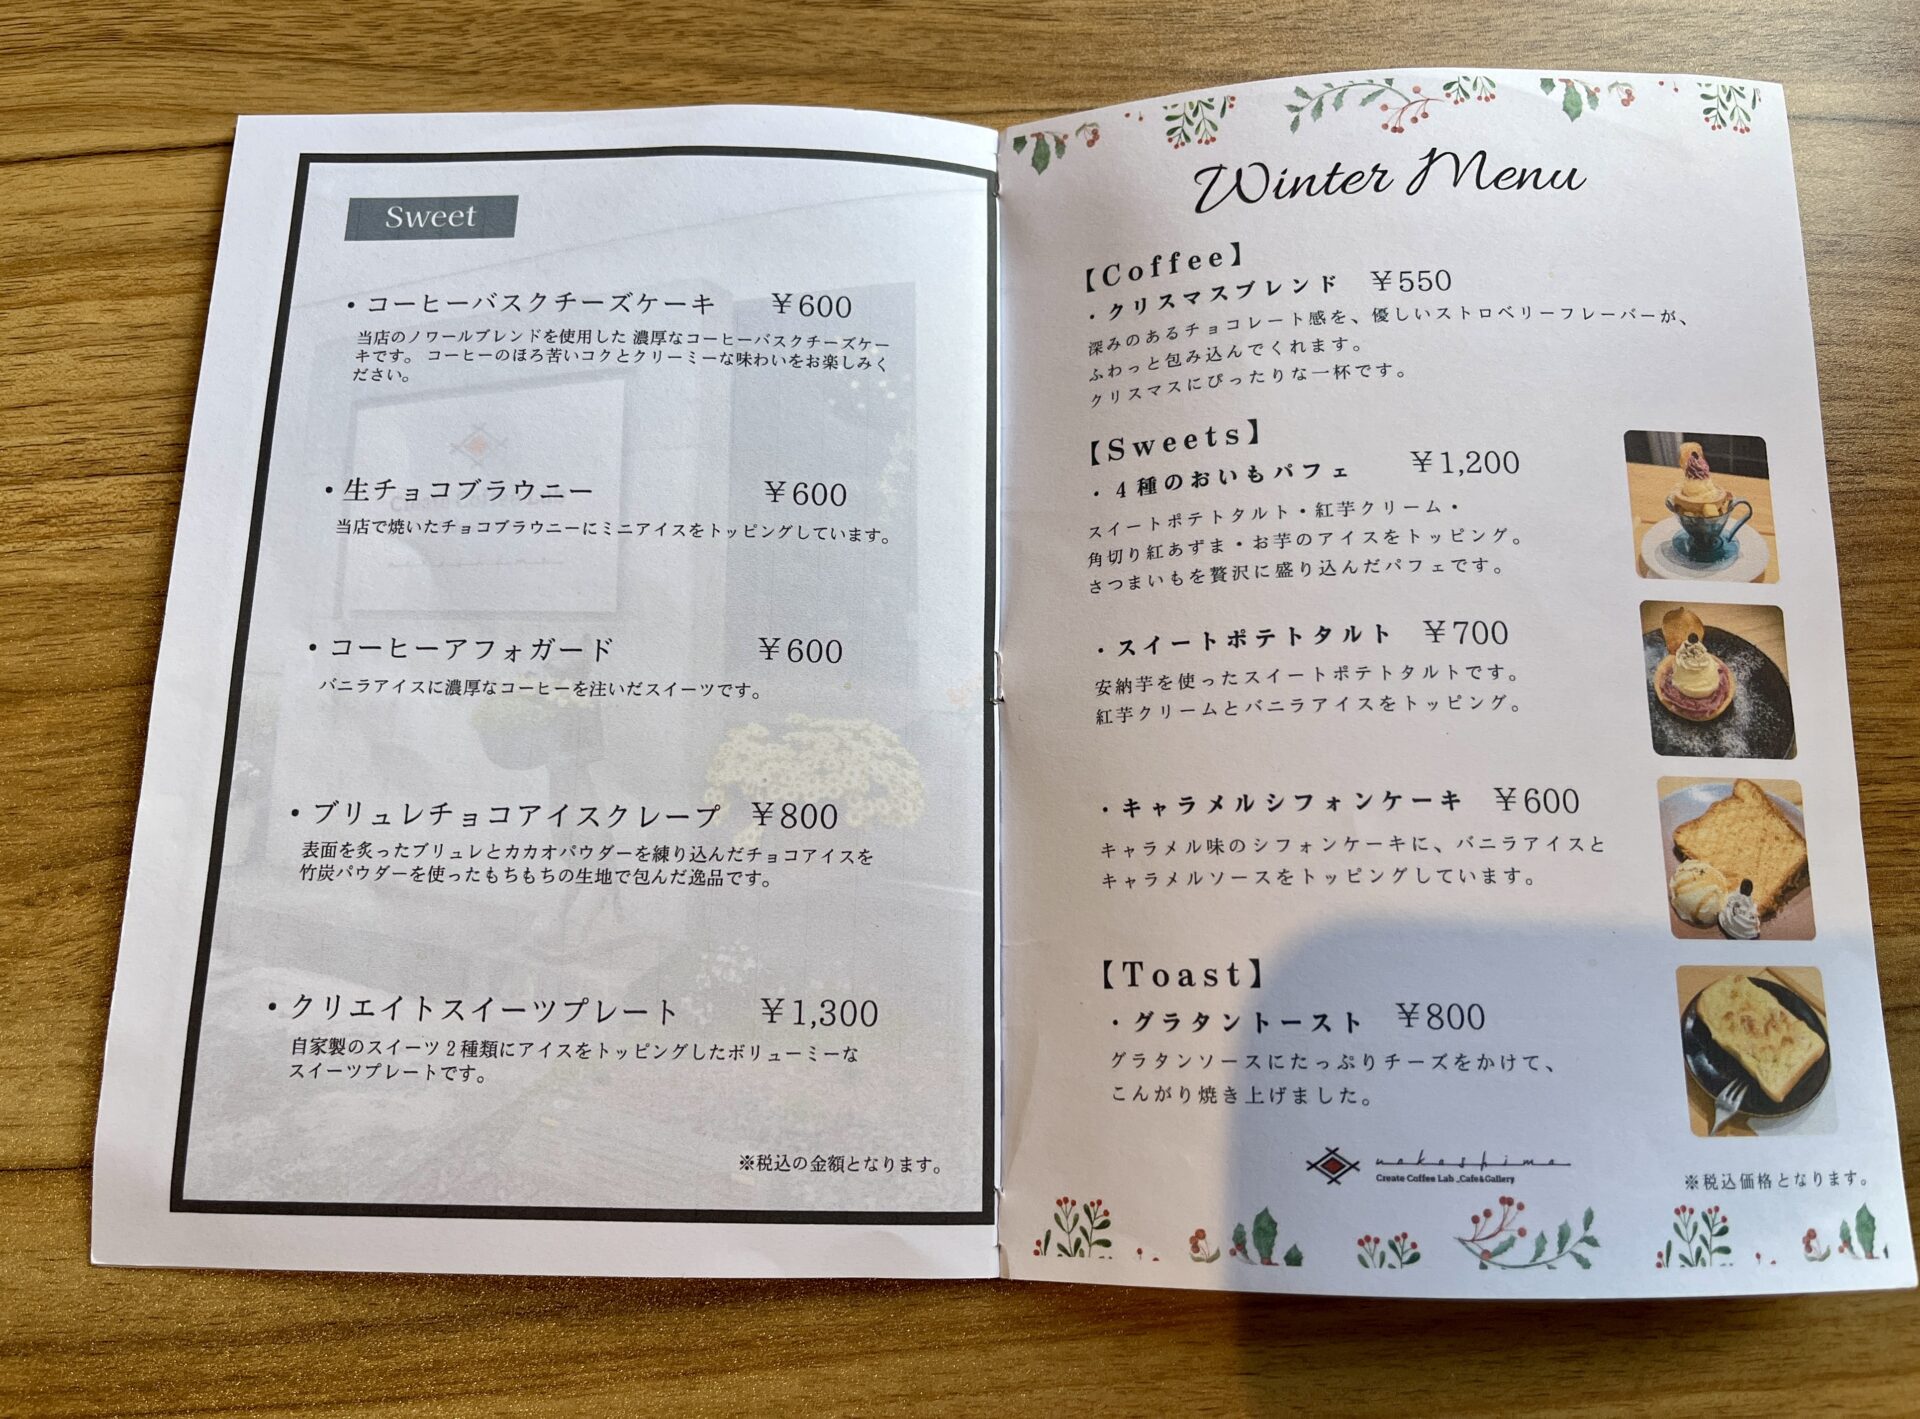 Sweet
・コーヒーバスクチーズケーキ ￥600
当店のノワールブレンドを使用した 濃厚なコーヒーバスクチーズケー
キです。 コーヒーのほろ苦いコクとクリーミーな味わいをお楽しみく
ださい。
・生チョコブラウニー ￥600
当店で焼いたチョコブラウニーにミニアイスをトッピングしています。
・コーヒーアフォガード ￥600
バニラアイスに濃厚なコーヒーを注いだスイーツです。
・ブリュレチョコアイスクレープ ￥800
表面を炙ったブリュレとカカオパウダーを練り込んだチョコアイスを
竹炭パウダーを使ったもちもちの生地で包んだ逸品です。
・クリエイトスイーツプレート ￥1,300
自家製のスイーツ2種類にアイスをトッピングしたボリューミーな
スイーツプレートです。
※税込の金額となります。
Winter Menu
【Coffee】
・クリスマスブレンド ￥550
深みのあるチョコレート感を、優しいストロベリーフレーバーが、
ふわっと包み込んでくれます。
クリスマスにぴったりな一杯です。
【Sweets】
・4種のおいもパフェ ￥1,200
スイートポテトタルト・紅芋クリーム・
角切り紅あずま・お芋のアイスをトッピング。
さつまいもを贅沢に盛り込んだパフェです。
・スイートポテトタルト ￥700
安納芋を使ったスイートポテトタルトです。
紅芋クリームとバニラアイスをトッピング。
・キャラメルシフォンケーキ ￥600
キャラメル味のシフォンケーキに、バニラアイスと
キャラメルソースをトッピングしています。
【Toast】
・グラタントースト ￥800
グラタンソースにたっぷりチーズをかけて、
こんがり焼き上げました。
nakashima
Create Coffee Lab _Cafe&Gallery
※税込価格となります。